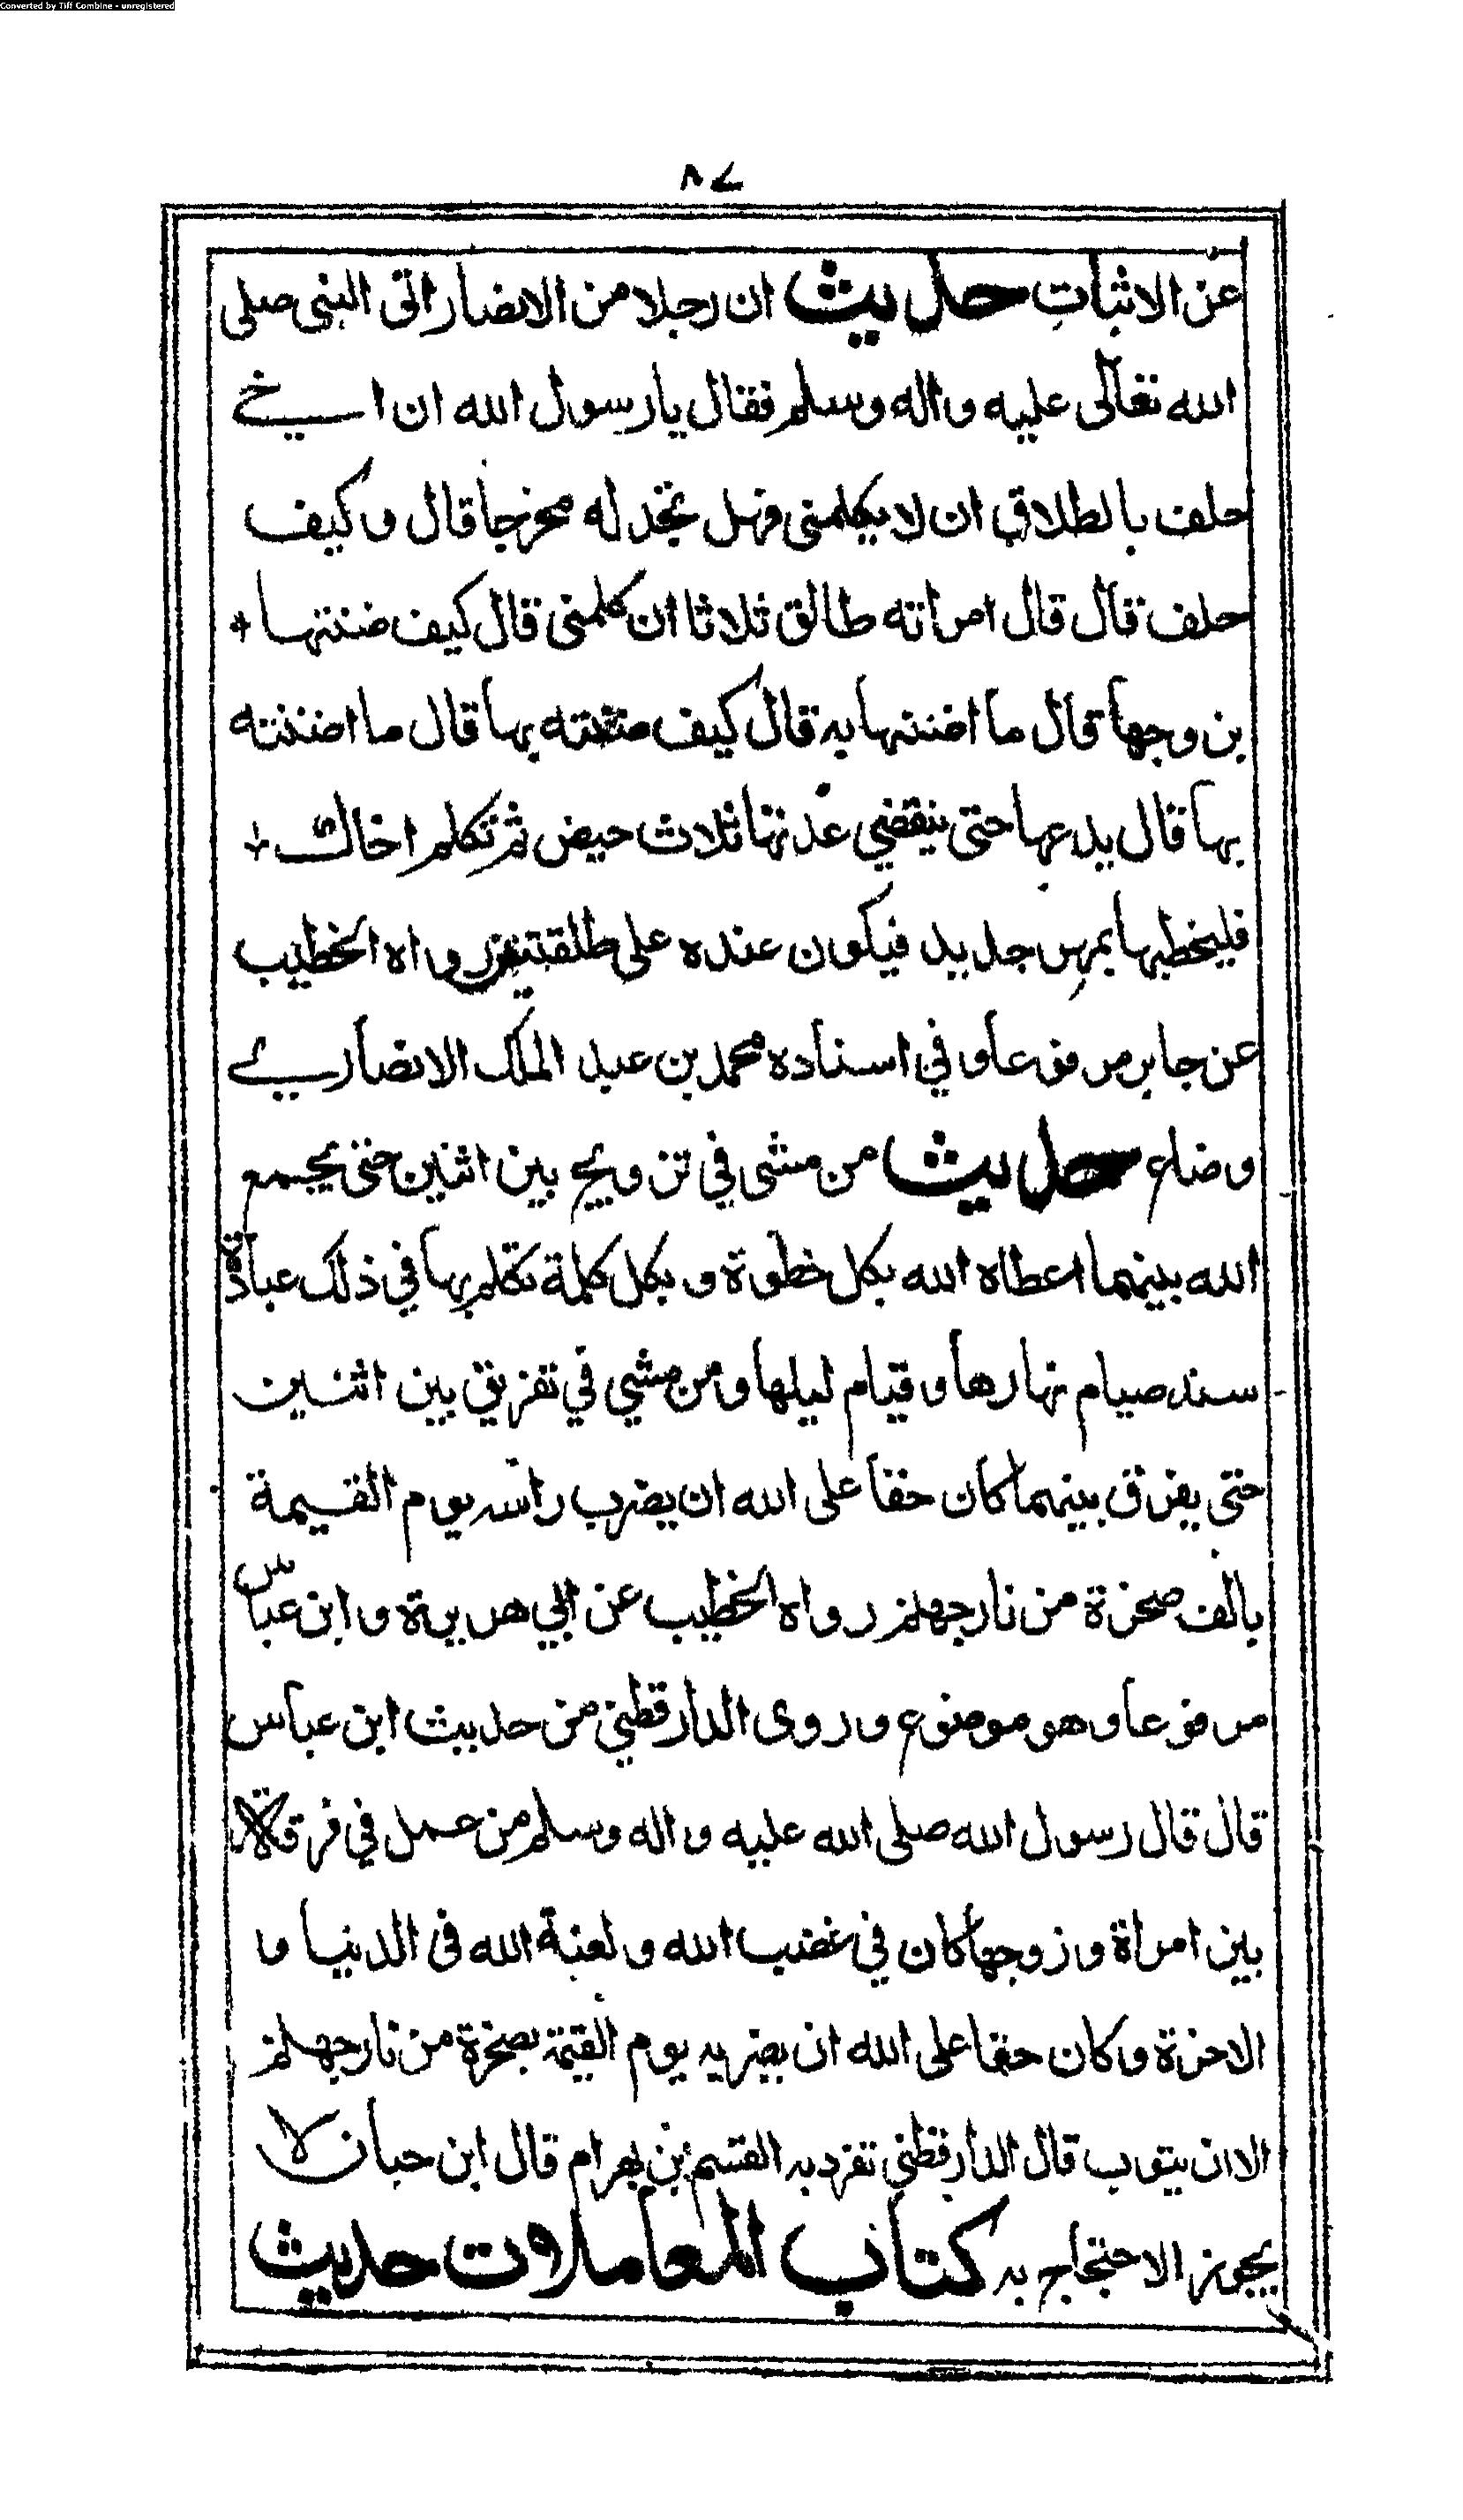 Converted by Tiff Combine - unregistered
٨٧
عن الاثبات حديث ان رجلا من الانصار اتى النبى صلى
الله تعالى عليه واله وسلم فقال يا رسول الله ان اخي
حلف بالطلاق ان لا يكلمنى فهل تجد له مخرجا قال وكيف
حلف قال قال امراته طالق ثلاثا ان كلمنى قال كيف ضنتها
بزوجها قال ما اضننها به قال كيف ضنته بها قال ما اضننته
بها قال يدعها حتى ينقضي عدتها ثلاث حيض ثم تكلم اخاك
فليخطبها بمهر جديد فيكون عنده على طلقتين رواه الخطيب
عن جابر مرفوعا وفي اسناده محمد بن عبد الملك الانصاري
وضاع حديث من مشى في تزويج بين اثنين حتى يجمع
الله بينهما اعطاه الله بكل خطوة وبكل كلمة تكلم بها في ذلك عبادة
سنة صيام نهارها وقيام ليلها ومن مشي في تفريق بين اثنين
حتى يفرق بينهما كان حقا على الله ان يضرب راسه يوم القيمة
بالف صخرة من نار جهنم رواه الخطيب عن ابي هريرة وابن عباس
مرفوعا وهو موضوع وروى الدارقطني من حديث ابن عباس
قال قال رسول الله صلى الله عليه واله وسلم من عمل في فرقة
بين امراة وزوجها كان في غضب الله ولعنة الله فى الدنيا وا
الاخرة وكان حقا على الله ان يضربه يوم القيمة بصخرة من نار جهنم
الا ان يتوب قال الدارقطني تفرد به القسم بن بهرام قال ابن حبان لا
يجوز الاحتجاج به كتاب المعاملات حديث